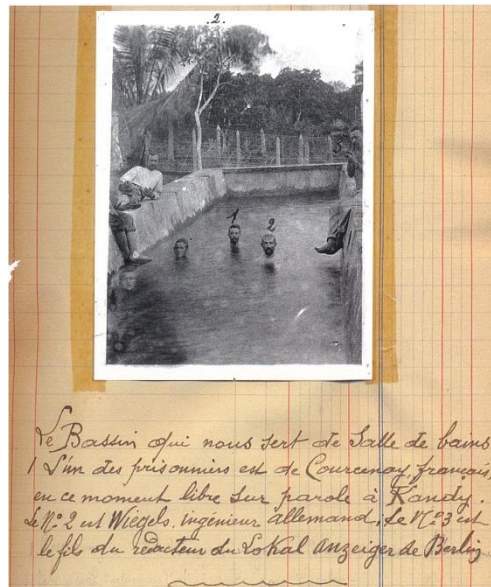 .2.
1
2
3
Le Bassin qui nous sert de Salle de bains
1 L'un des prisonniers est de Courcenay français,
en ce moment libre sur parole à Kandy.
Le N° 2 est Wiegels, ingénieur allemand, Le N° 3 est
le fils du rédacteur du Lokal Anzeiger de Berlin